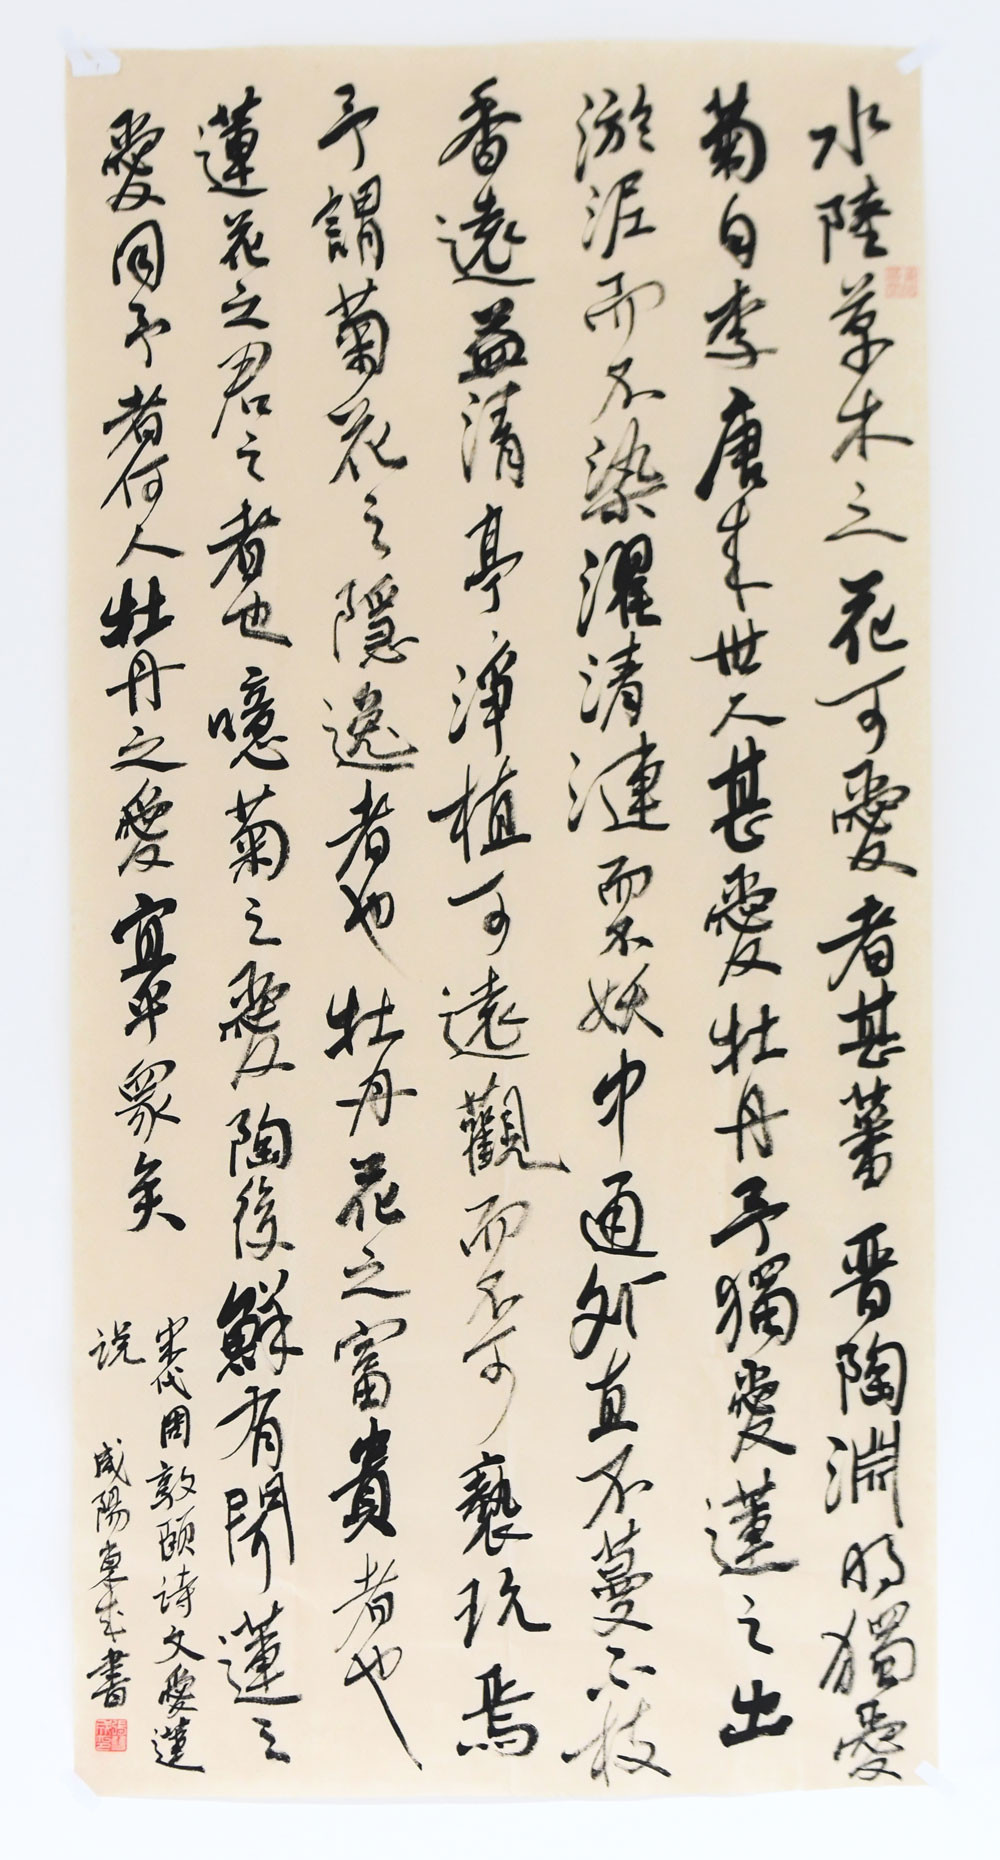 水陸草木之花可愛者甚蕃晋陶淵明獨愛
菊自李唐来世人甚愛牡丹予獨愛蓮之出
淤泥而不染濯清漣而不妖中通外直不蔓不枝
香遠益清亭淨植可遠觀而不可褻玩焉
予謂菊花之隱逸者也牡丹花之富貴者也
蓮花之君之者也噫菊之愛陶後鮮有聞蓮之
愛同予者何人牡丹之愛宜乎眾矣
宋代周敦颐诗文愛蓮
说
咸陽東成書